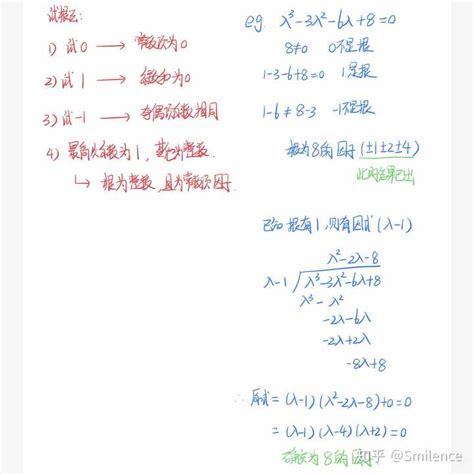 试根法:
1) 试0 → 常数项为0
2) 试1 → 系数和为0
3) 试-1 → 奇偶项系数相同
4) 最高次系数为1, 其它为整数.
↳ 根为整数, 且为常数项因子.
eg. λ³-3λ²-6λ+8=0
8≠0 0不是根
1-3-6+8=0 1是根
1-6≠8-3 -1不是根
根为8的因子(±1±2±4)
此时结果已出
已知根有1,则有因式(λ-1)
λ²-2λ-8
λ-1 λ³-3λ²-6λ+8
λ³-λ²
-2λ-6λ
-2λ+2λ
-8λ+8
∴ 原式=(λ-1)(λ²-2λ-8)+0=0
=(λ-1)(λ-4)(λ+2)=0
确实为8的因子
知乎 @Smilence